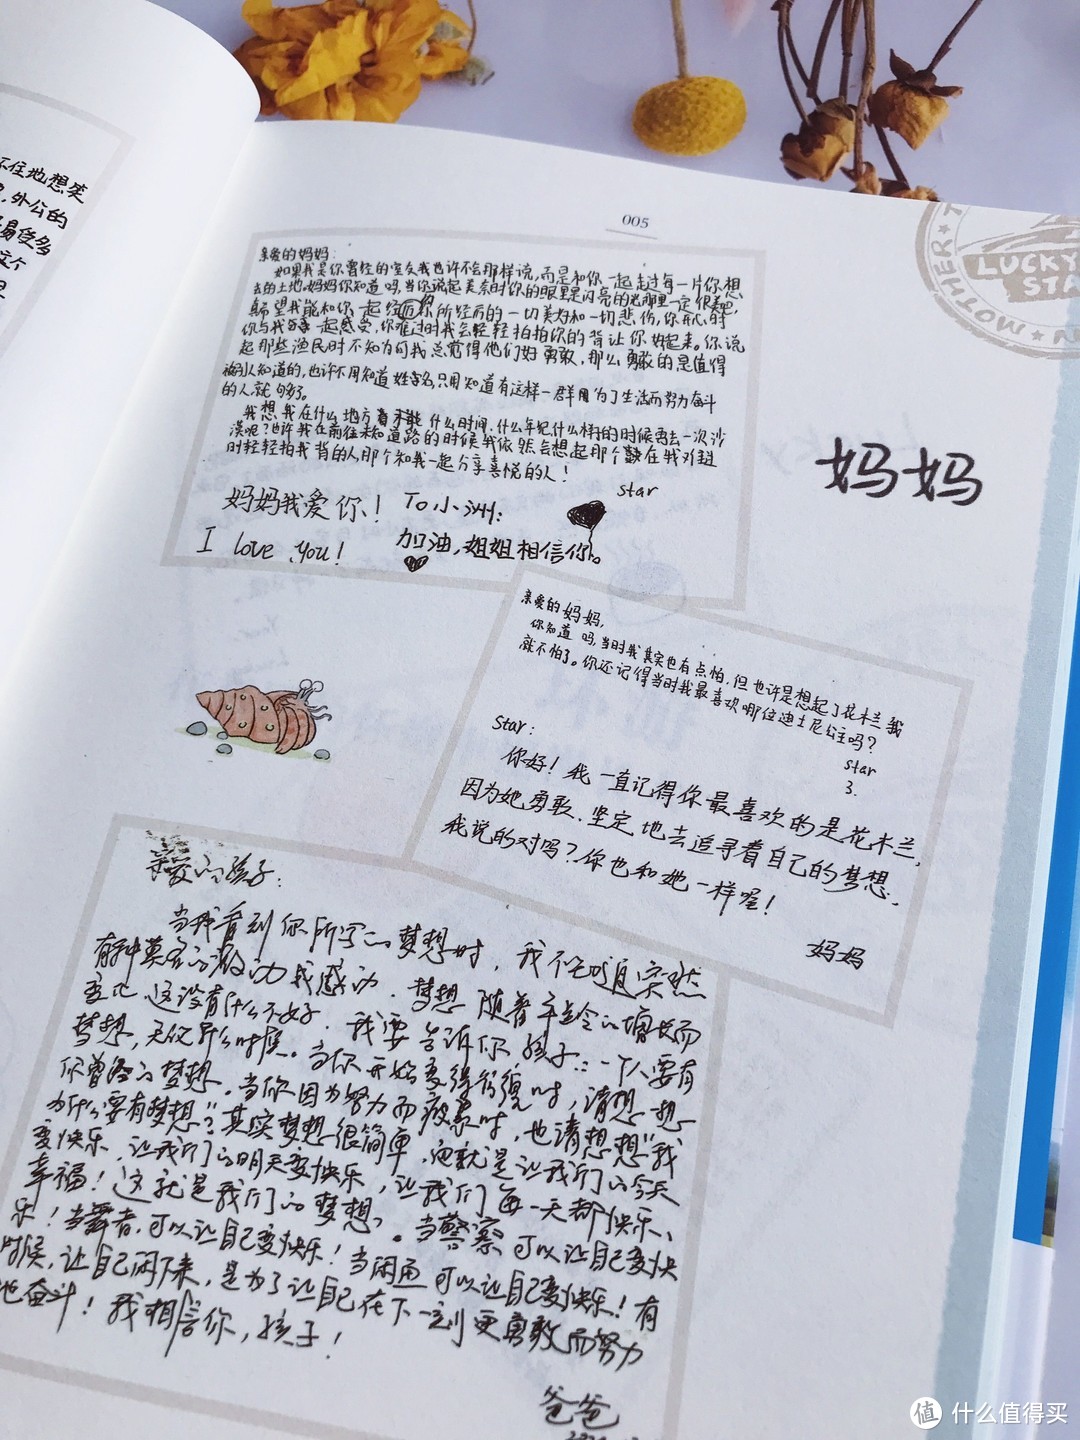 不住地想笑
外公的
005
LUCKY
STA
亲爱的妈妈:
如果我是你曾经的室友我也许不会那样说,而是和你一起走过每一片你想
去的土地,妈妈你知道吗,当你说起美奈时你的眼里是闪亮的光那里一定很美吧,
希望我能和你一起经历你所经历的一切美好和一切悲伤,你开心时
你与我一起感受,你难过时我会轻轻拍拍你的背让你好起来。你说
起那些渔民时不知为何我总觉得他们好勇敢,那么勇敢的是值得
被别人知道的,也许不用知道姓名,只用知道有这样一群为了生活而努力奋斗
的人就够了。
我想我在什么地方 什么时间,什么年纪什么样的时候再去一次沙
漠呢?也许我在前往未知道路的时候我依然会想起那个 在我难过
时轻轻拍我背的人那个和我一起分享喜悦的人!
star
妈妈我爱你!
To小洲:
I love you!
加油,姐姐相信你。
妈妈
亲爱的妈妈,
你知道吗,当时我其实也有点怕,但也许是想起了花木兰我
就不怕了。你还记得当时我最喜欢哪位迪士尼公主吗?
star
3.
Star:
你好!我一直记得你最喜欢的是花木兰,
因为她勇敢、坚定地去追寻着自己的梦想,
我说的对吗?你也和她一样喔!
妈妈
亲爱的孩子:
当我看到你所写的梦想时,我不知道突然
有种莫名的激动或感动.梦想随着年龄的增长而
变化,这没有什么不好.我要告诉你,孩子:一个人要有
梦想,无论什么时候。当你开始变得 时,请想一想
你曾经的梦想.当你因为努力而疲惫时,也请想想"我
为什么要有梦想"?其实梦想很简单,它就是让我们的今天
变快乐,让我们的明天变快乐,让我们每一天都快乐、
幸福!这就是我们的梦想。当警察可以让自己变快
乐!当舞者,可以让自己变快乐!当 可以让自己变快乐!有
时候,让自己闲下来,是为了让自己在下一刻更勇敢而努力
地奋斗!我相信你,孩子!
爸爸
值 什么值得买